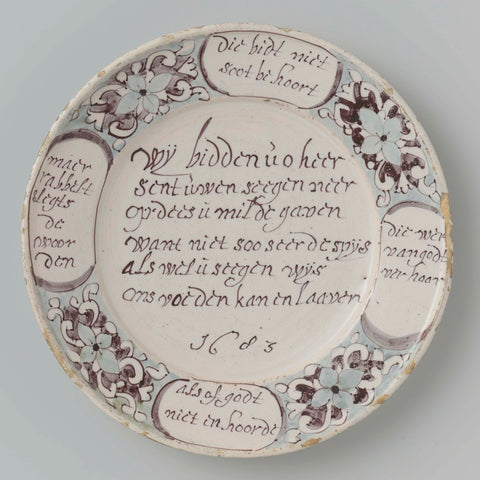 die bidt niet
soot behoort
maer
rabbelt
slegts
de
woor
den
Wij bidden u o heer
sent uwen seegen neer
op dees u milde gaven
want niet soo seer de spijs
als wel u seegen wijs
ons voeden kan en laaven
1683
die wer
van godt
verhoor
als of godt
niet en hoorde